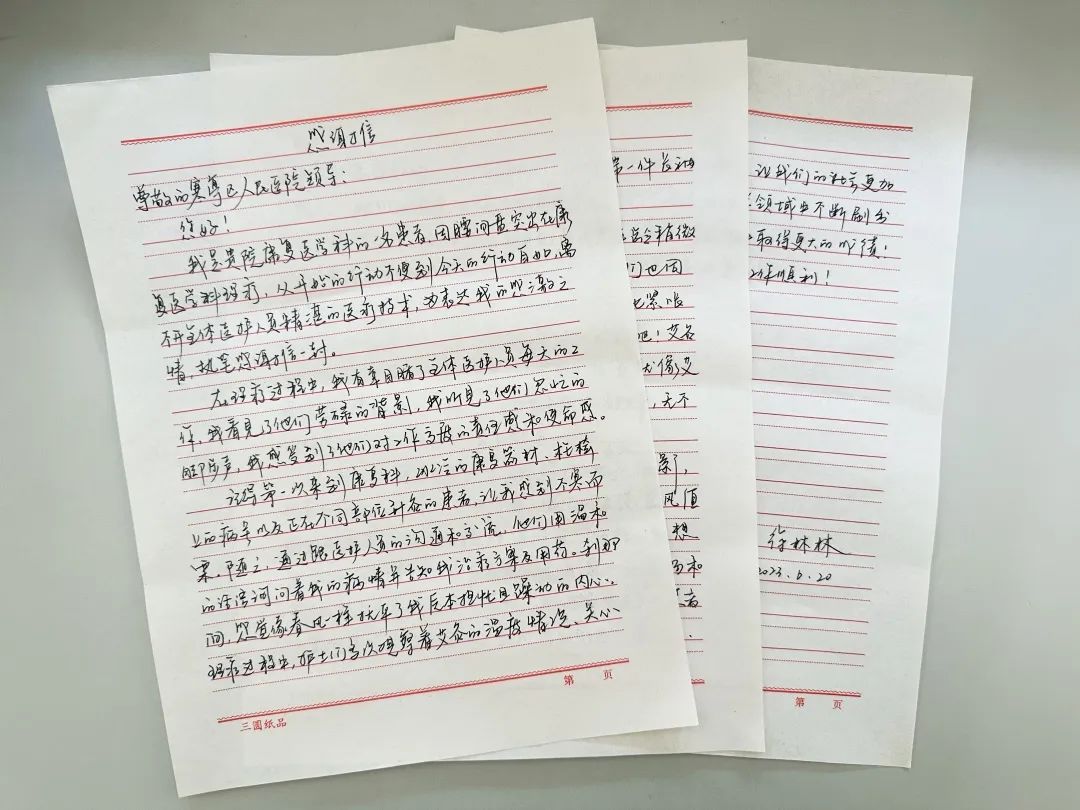 感谢信
尊敬的寒亭区人民医院领导：
您好！
我是贵院康复医学科的一名患者，因腰间盘突出在康
复医学科理疗，从开始的行动不便到今天的行动自如，离
不开全体医护人员精湛的医疗技术，为表达我的感激之
情，执笔感谢信一封。
在理疗过程中，我有幸目睹了全体医护人员每天的工
作，我看见了他们劳碌的背影，我听见了他们急忙的
脚步声，我感受到了他们对工作高度的责任感和使命感。
记得第一次来到康复科，的康复器材、
的病号以及正在不同部位针灸的患者，让我感到不寒而
栗。随之，通过跟医护人员的沟通和交流，他们用温和
的话语询问着我的病情并告知我治疗方案及用药。刹那
间，感觉像春风一样抚平了我反本担忧且躁动的内心。
理疗过程中，护士们多次提醒着艾灸的温度情况、关心
三圆纸品
第 页
第一件
会有微
们也因
吧！艾
像艾
，无不
影，
风值
想
和
让我们的社会更加
领域中不断刷出
取得更大的成绩！
工作顺利！
徐林林
2023.6.20
第 页